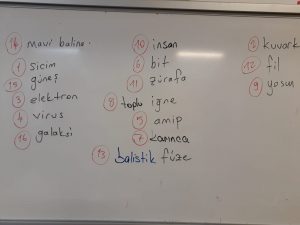 14 mavi balina.
1 sicim
15 güneş
3 elektron
4 virüs
16 galaksi
10 insan
6 bit
11 zürafa
8 toplu iğne
5 amip
7 karınca
13 balistik füze
2 kuvark
12 fil
9 yosun